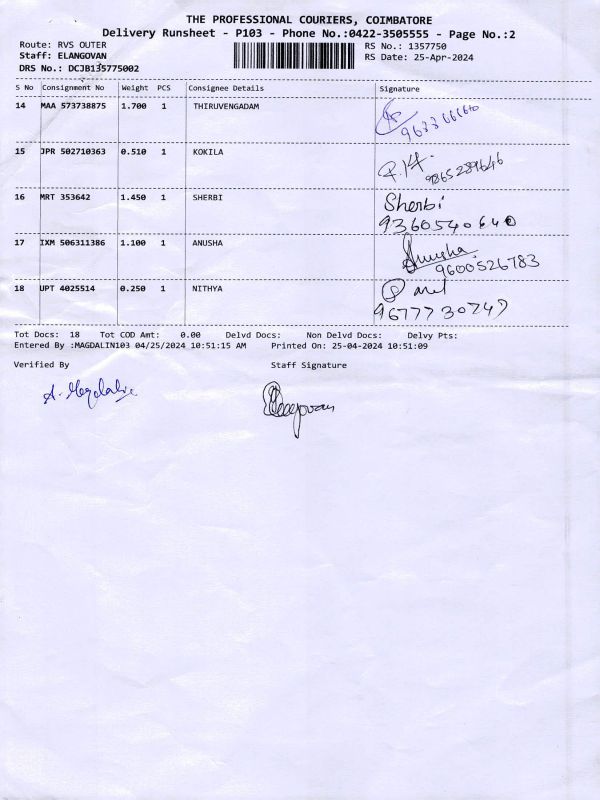 THE PROFESSIONAL COURIERS, COIMBATORE
Delivery Runsheet - P103 - Phone No.:0422-3505555 - Page No.:2
Route: RVS OUTER RS No.: 1357750
Staff: ELANGOVAN RS Date: 25-Apr-2024
DRS No.: DCJB135775002
S No Consignment No Weight PCS Consignee Details Signature
14 MAA 573738875 1.700 1 THIRUVENGADAM
15 JPR 502710363 0.510 1 KOKILA
9865289646
16 MRT 353642 1.450 1 SHERBI Sherbi
9360540640
17 IXM 506311386 1.100 1 ANUSHA Anusha
9600526783
18 UPT 4025514 0.250 1 NITHYA
9677730747
Tot Docs: 18 Tot COD Amt: 0.00 Delvd Docs: Non Delvd Docs: Delvy Pts:
Entered By :MAGDALIN103 04/25/2024 10:51:15 AM Printed On: 25-04-2024 10:51:09
Verified By Staff Signature